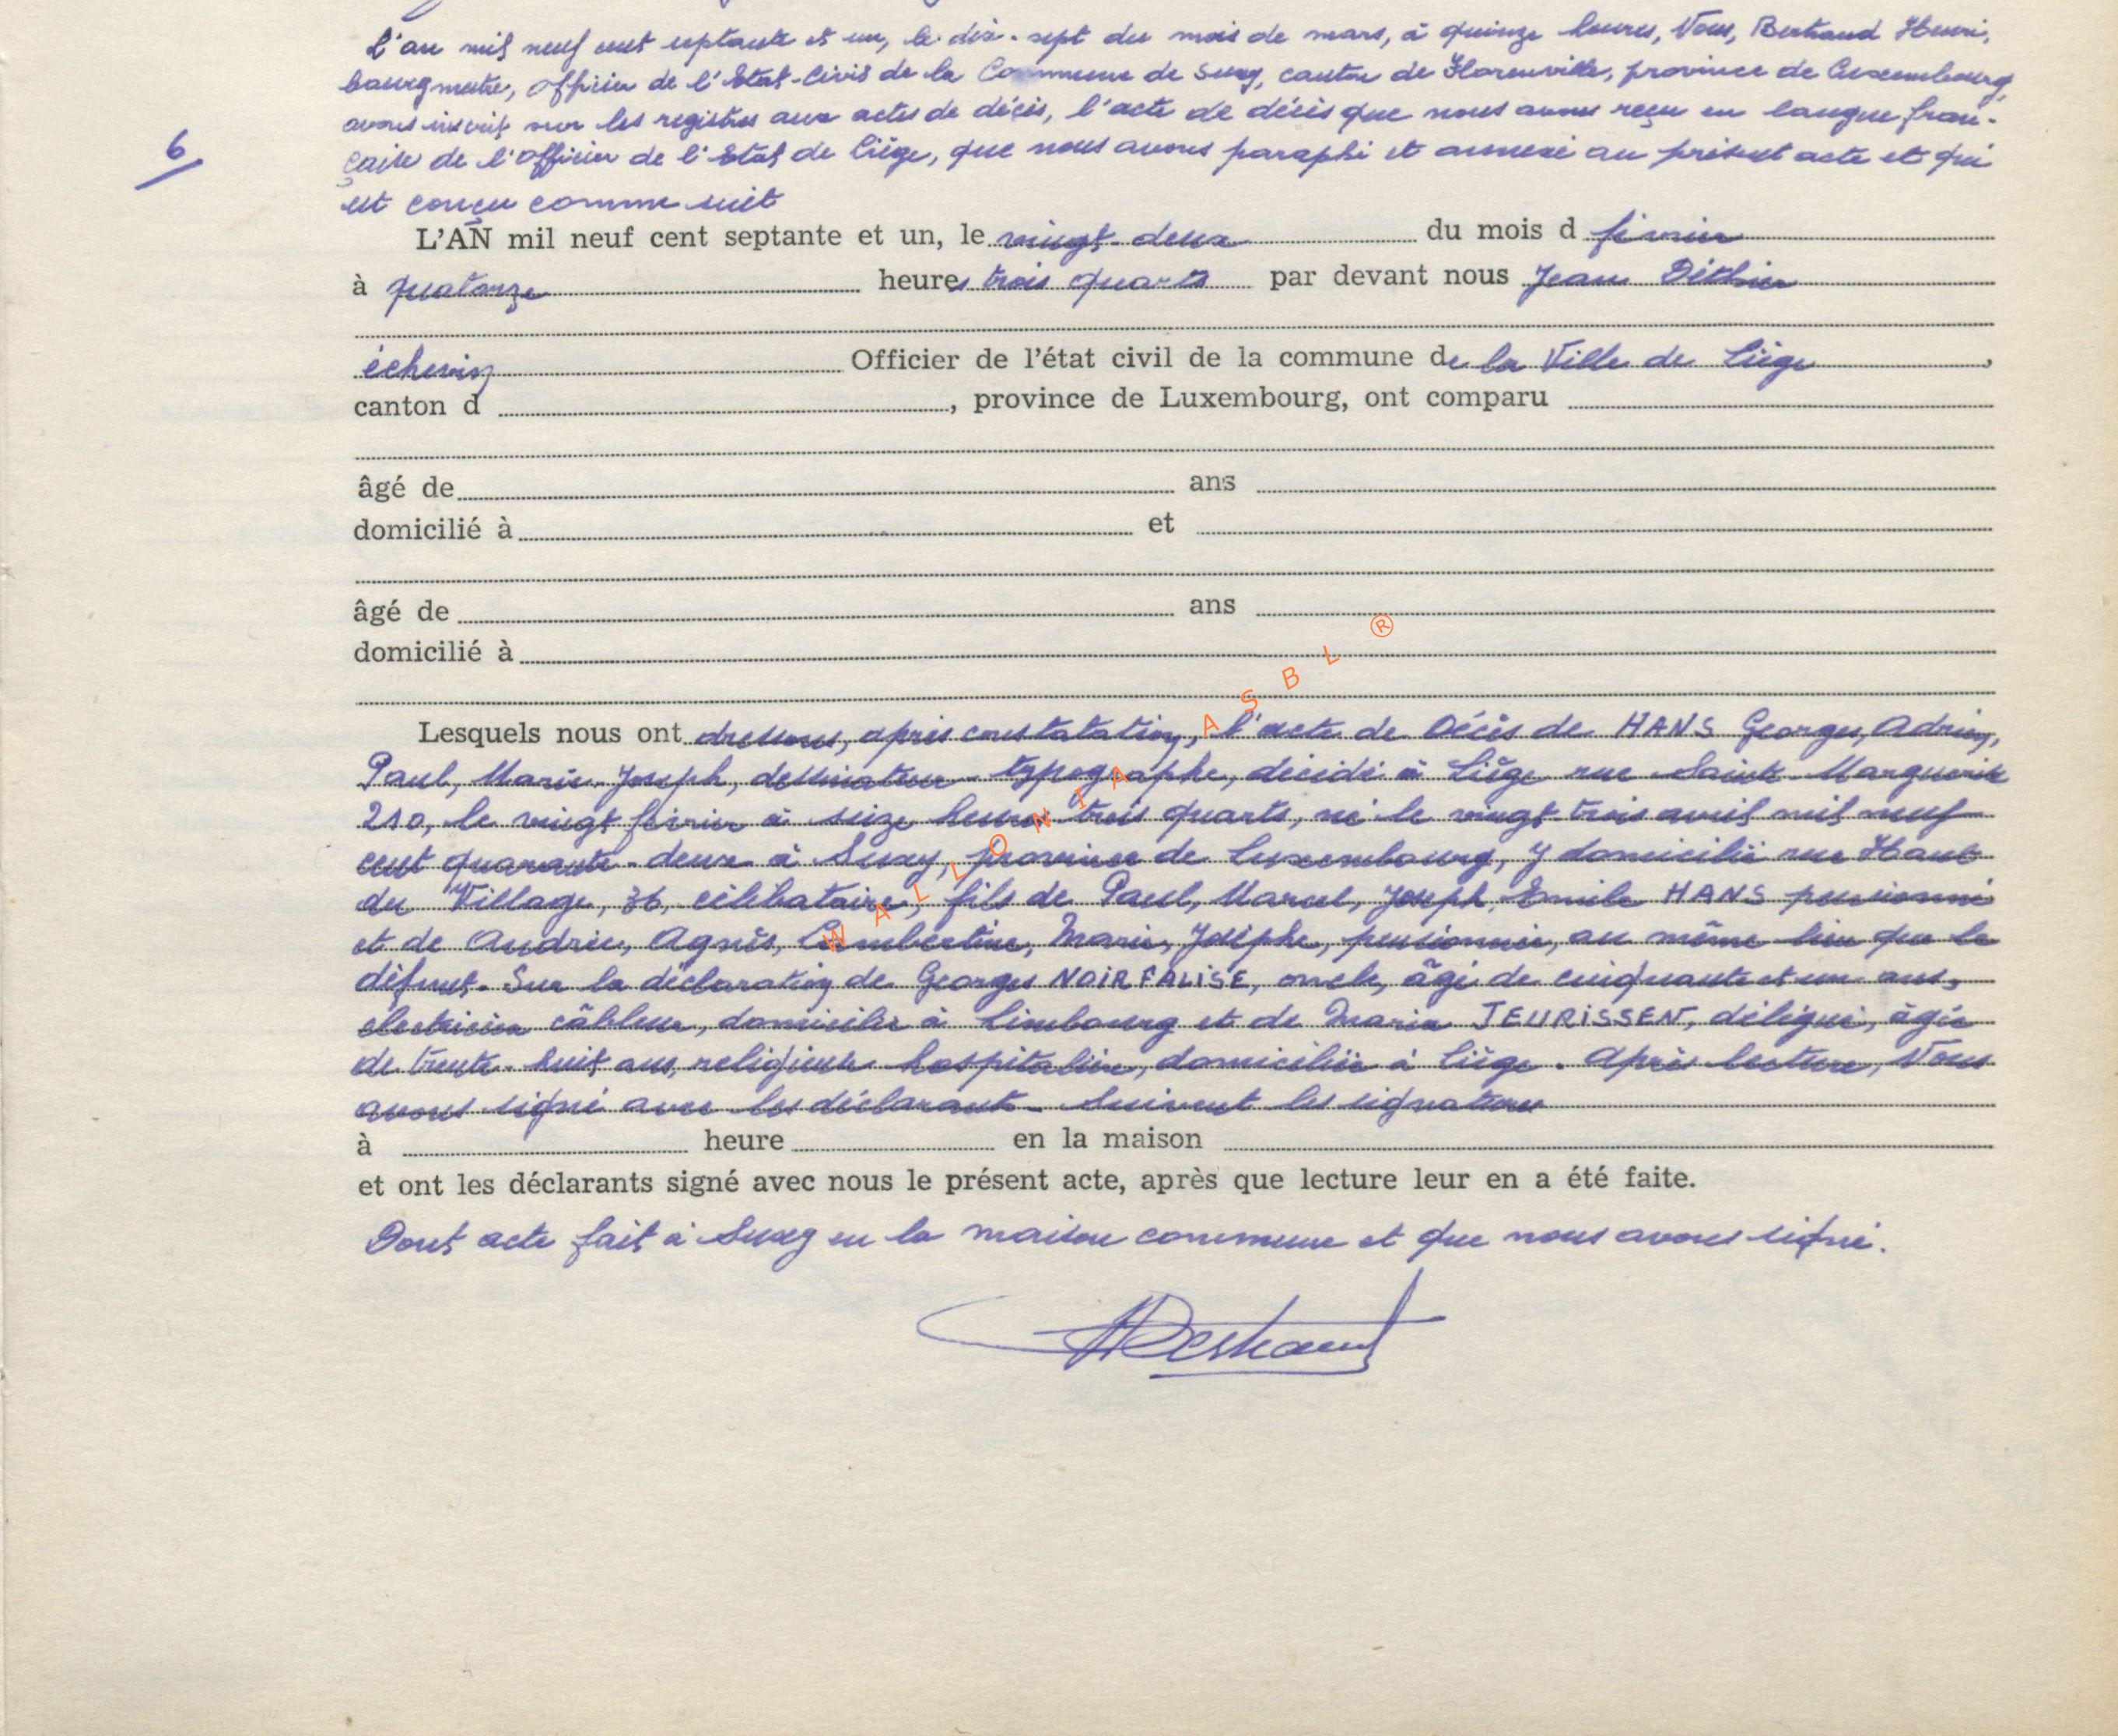 L'an mil neuf cent septante et un, le dix-sept du mois de mars, à quinze heures, Nous, Bertrand Henri,
bourgmestre, officier de l'Etat-Civil de la Commune de Suxy, canton de Florenville, province de Luxembourg,
avons inscrit sur les registres aux actes de décès, l'acte de décès que nous avons reçu en langue fran-
6
çaise de l'Officier de l'Etat de Liège, que nous avons paraphé et annexé au présent acte et qui
est conçu comme suit
L'AN mil neuf cent septante et un, le vingt-deux du mois d février
à quatorze heures trois quarts par devant nous Jean Déthier
échevin Officier de l'état civil de la commune de la Ville de Liège,
canton d , province de Luxembourg, ont comparu
âgé de ans
domicilié à et
âgé de ans
domicilié à
Lesquels nous ont dressons, après constatation, l'acte de Décès de HANS Georges, Adrien,
Paul, Marie, Joseph, dessinateur-typographe, décédé à Liège rue Sainte-Marguerite
210, le vingt février à seize heures trois quarts, né le vingt-trois avril mil neuf
cent quarante-deux à Suxy, province de Luxembourg, y domicilié rue Haut
du Village, 36, célibataire, fils de Paul, Marcel, Joseph, Emile HANS pensionné
et de Andrée, Agnès, Lambertine, Marie, Josèphe, pensionnée, au même lieu que le
défunt. Sur la déclaration de Georges NOIRFALISE, oncle, âgé de cinquante et un ans,
électricien câbleur, domicilié à Limbourg et de Maria JEURISSEN, délégué, âgée
de trente-huit ans, religieuse hospitalière, domiciliée à Liège. Après lecture, Nous
avons signé avec les déclarants. Suivent les signatures
à heure en la maison
et ont les déclarants signé avec nous le présent acte, après que lecture leur en a été faite.
Dont acte fait à Suxy en la maison commune et que nous avons signé.
HBertrand
WALLONIA ASBL ®